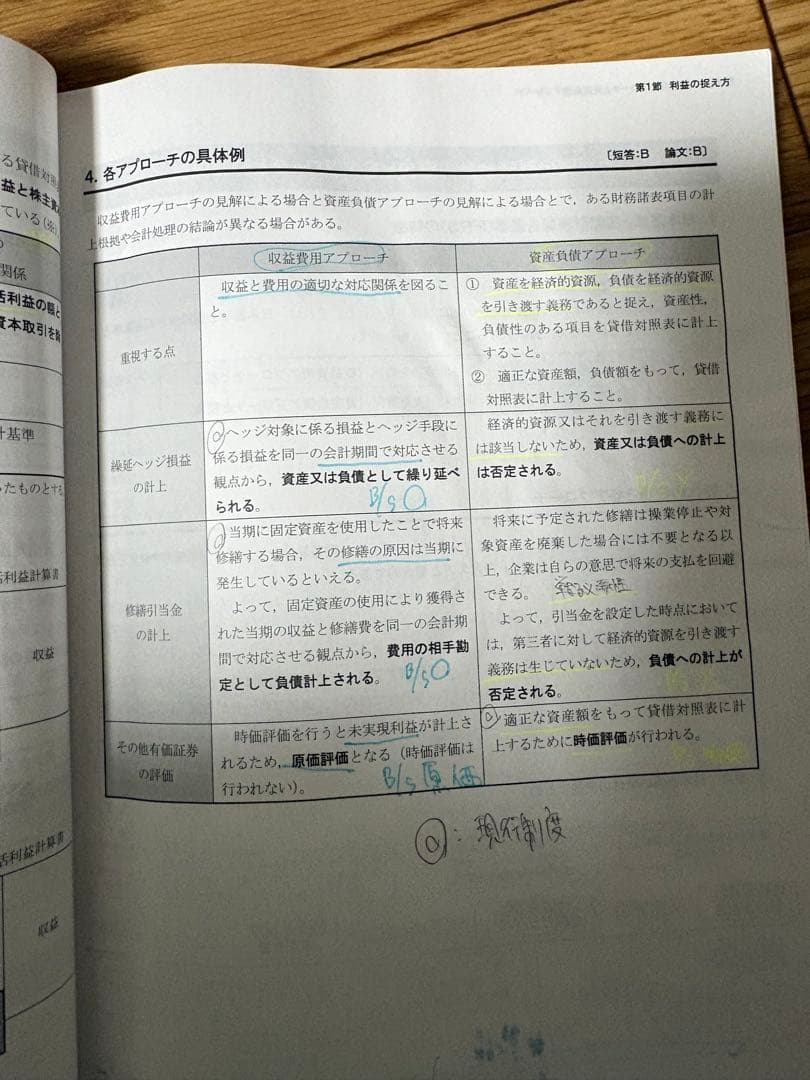 第1節 利益の捉え方
4. 各アプローチの具体例
〔短答:B 論文:B〕
収益費用アプローチの見解による場合と資産負債アプローチの見解による場合とで，ある財務諸表項目の計
上根拠や会計処理の結論が異なる場合がある。
収益費用アプローチ
資産負債アプローチ
重視する点
収益と費用の適切な対応関係を図るこ
と。
① 資産を経済的資源，負債を経済的資源
を引き渡す義務であると捉え，資産性，
負債性のある項目を貸借対照表に計上
すること。
② 適正な資産額，負債額をもって，貸借
対照表に計上すること。
繰延ヘッジ損益
の計上
ヘッジ対象に係る損益とヘッジ手段に
係る損益を同一の会計期間で対応させる
観点から，資産又は負債として繰り延べ
られる。
B/S○
経済的資源又はそれを引き渡す義務に
は該当しないため，資産又は負債への計上
は否定される。
修繕引当金
の計上
当期に固定資産を使用したことで将来
修繕する場合，その修繕の原因は当期に
発生しているといえる。
よって，固定資産の使用により獲得さ
れた当期の収益と修繕費を同一の会計期
間で対応させる観点から，費用の相手勘
定として負債計上される。
B/S○
将来に予定された修繕は操業停止や対
象資産を廃棄した場合には不要となる以
上，企業は自らの意思で将来の支払を回避
できる。
よって，引当金を設定した時点において
は，第三者に対して経済的資源を引き渡す
義務は生じていないため，負債への計上が
否定される。
その他有価証券
の評価
時価評価を行うと未実現利益が計上さ
れるため，原価評価となる（時価評価は
行われない）。
B/S 原価
適正な資産額をもって貸借対照表に計
上するために時価評価が行われる。
○: 現行制度
る貸借対照
益と株主資
ている（※）
関係
括利益の額と
資本取引を除
計基準
ったものとする
括利益計算書
収益
活利益計算書
収益